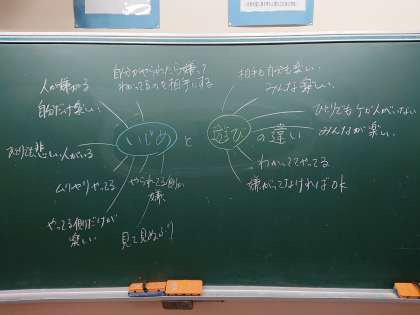 人が嫌がる
自分だけ楽しい
自分がやられたら嫌って
わかってるのを相手にする
相手も自分も楽しい
みんな楽しい
ひとりでもケガ人がいない
みんなが楽しい
いじめ と 遊び の違い
ひとりでも悲しい人がいる
ムリやりやってる
やられてる側が
嫌
わかっててやってる
嫌がってなければOK
やってる側だけが
楽しい
見て見ぬふり